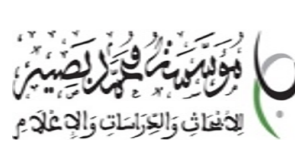 مؤسسة محمد بصير
للأبحاث والدراسات والإعلام